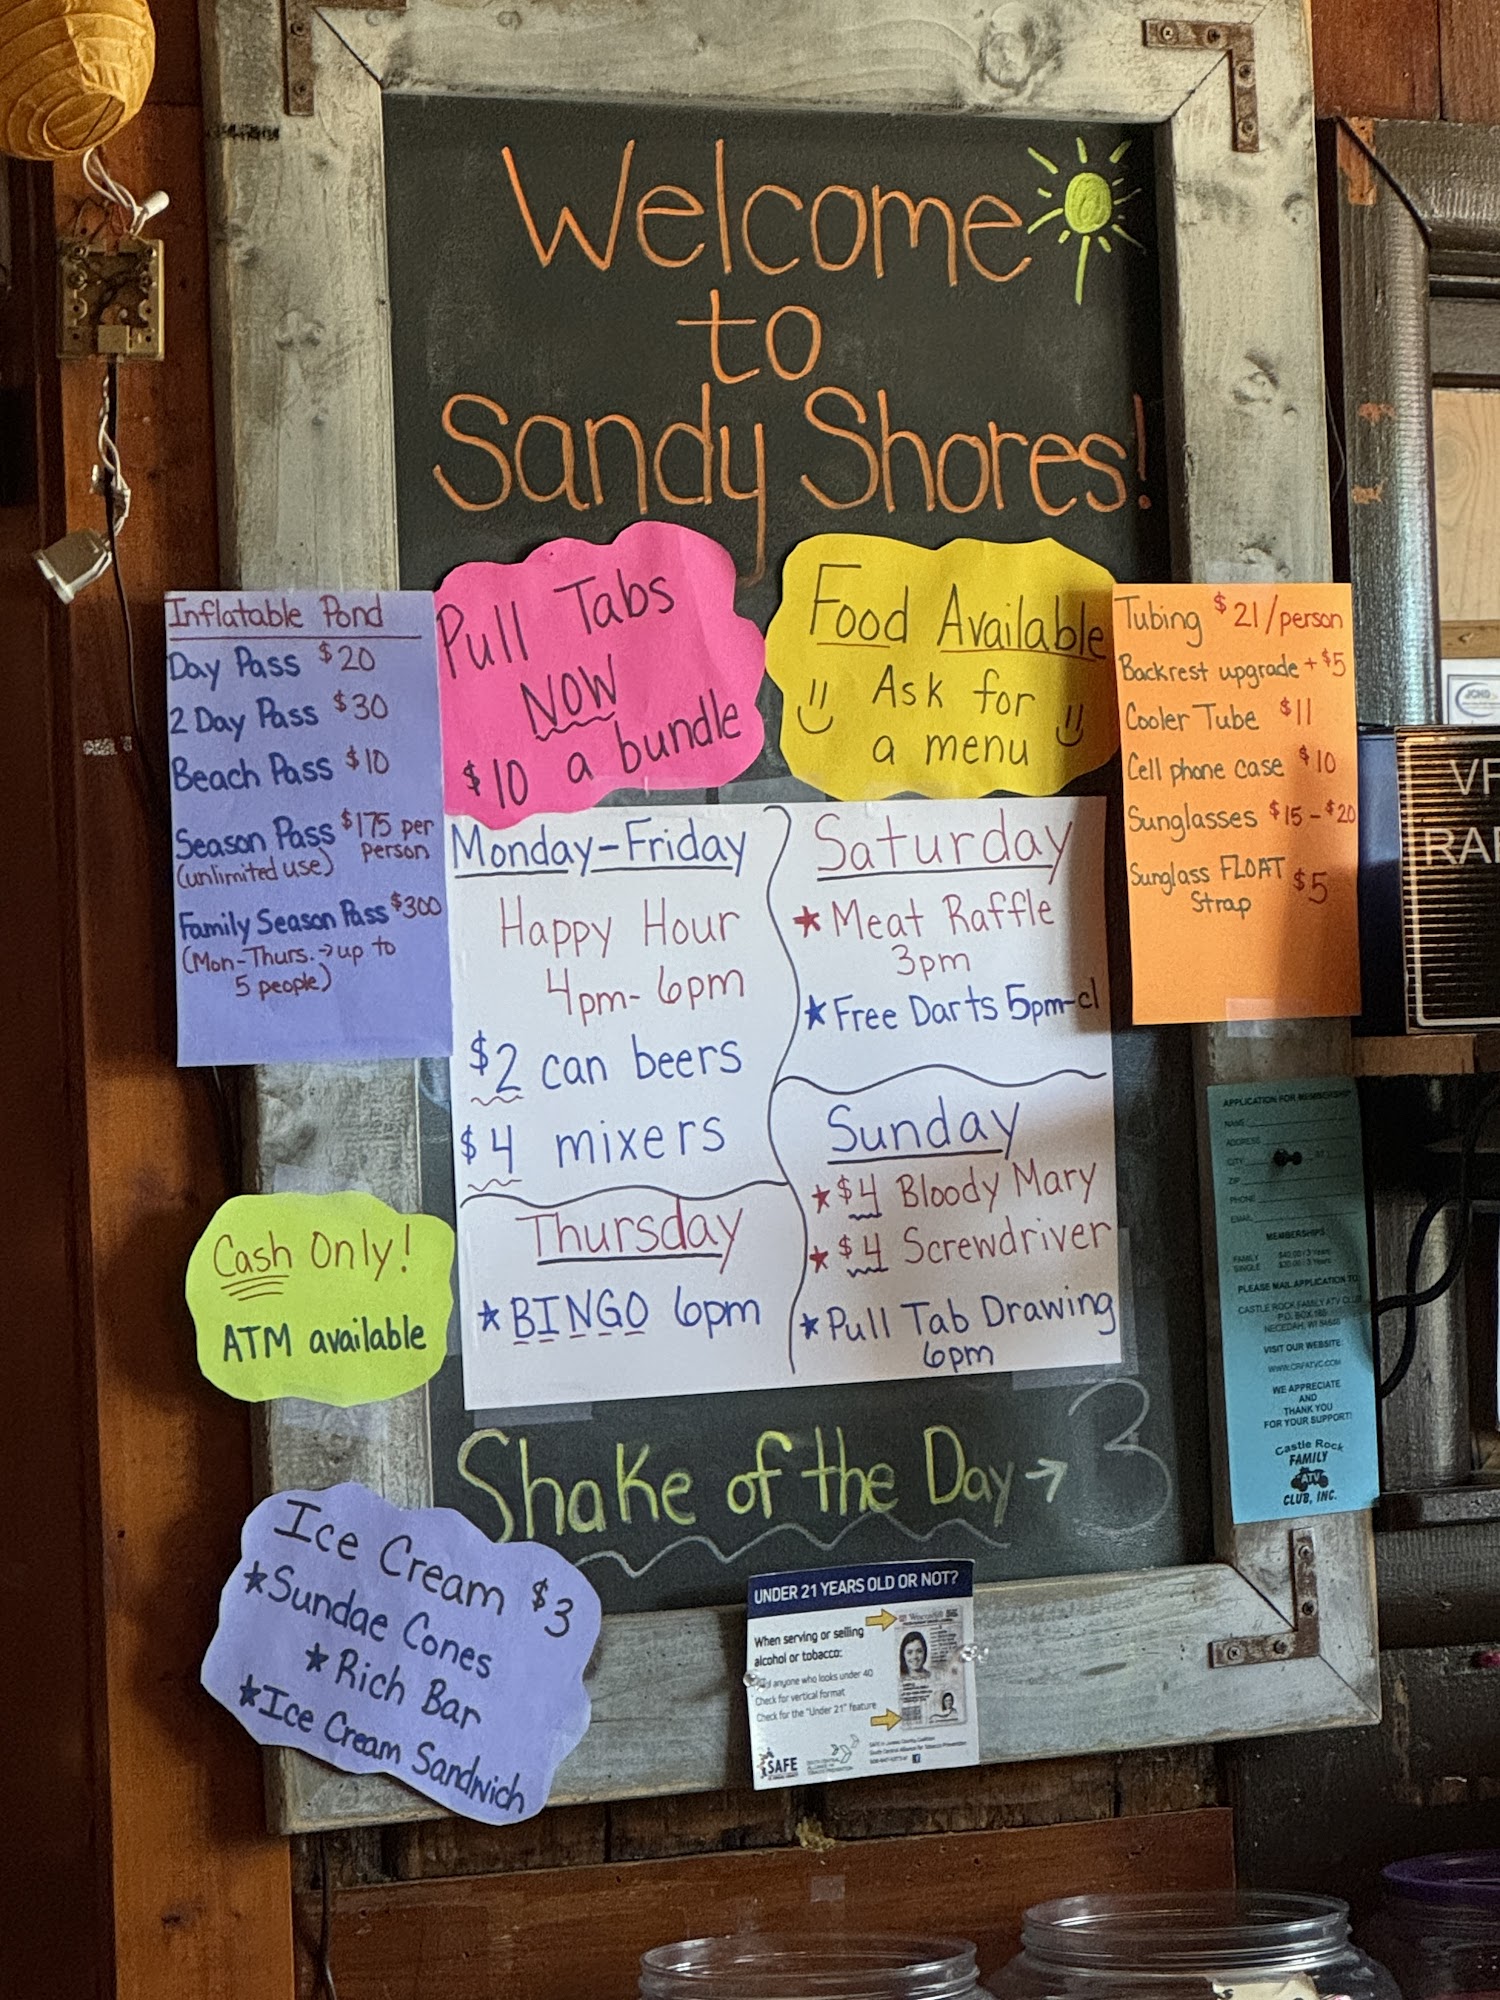 Welcome
to
Sandy Shores!
Inflatable Pond
Day Pass $20
2 Day Pass $30
Beach Pass $10
Season Pass $175 per
(unlimited use) person
Family Season Pass $300
(Mon-Thurs. → up to
5 people)
Pull Tabs
NOW
$10 a bundle
Food Available
Ask for
a menu
Tubing $21/person
Backrest upgrade + $5
Cooler Tube $11
Cell phone case $10
Sunglasses $15 - $20
Sunglass FLOAT
Strap $5
Monday-Friday
Happy Hour
4pm- 6pm
$2 can beers
$4 mixers
Thursday
★ BINGO 6pm
Saturday
★ Meat Raffle
3pm
★ Free Darts 5pm-cl
Sunday
★ $4 Bloody Mary
★ $4 Screwdriver
★ Pull Tab Drawing
6pm
Cash Only!
ATM available
Shake of the Day → 3
Ice Cream $3
★ Sundae Cones
★ Rich Bar
★ Ice Cream Sandwich
UNDER 21 YEARS OLD OR NOT?
When serving or selling
alcohol or tobacco:
anyone who looks under 40
Check for vertical format
Check for the "Under 21" feature
SAFE
APPLICATION FOR MEMBERSHIP
NAME
ADDRESS
CITY ST
ZIP
PHONE
EMAIL
MEMBERSHIPS
FAMILY $40.00 / 3 Years
SINGLE $30.00 / 3 Years
PLEASE MAIL APPLICATION TO:
CASTLE ROCK FAMILY ATV CLUB
P.O. BOX
NECEDAH, WI 54646
VISIT OUR WEBSITE:
WWW.CRFATVC.COM
WE APPRECIATE
AND
THANK YOU
FOR YOUR SUPPORT!
Castle Rock
FAMILY
ATV
CLUB, INC.